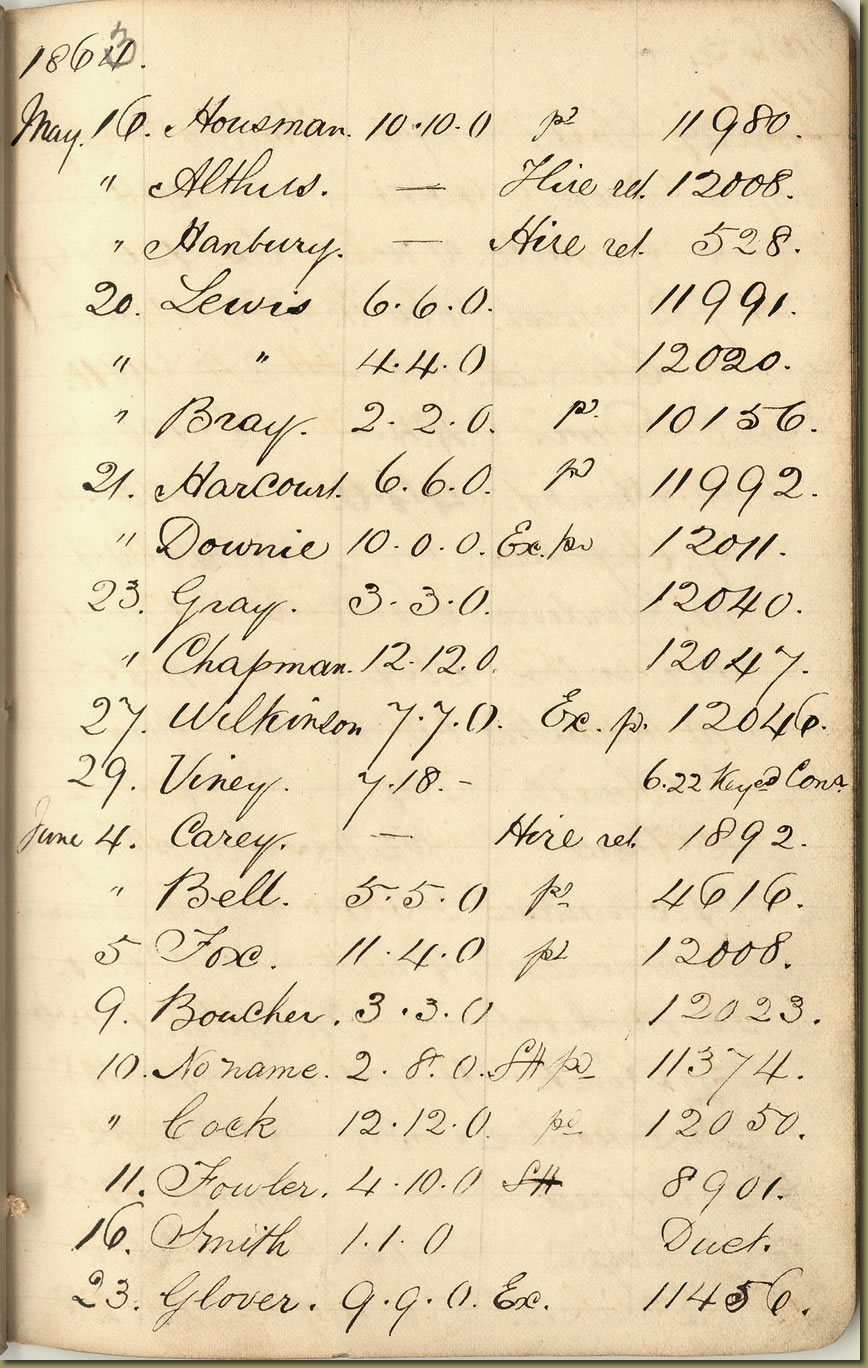 1864. 3
May. 16. Housman. 10.10.0 pd 11980.
" Althus. — Hire ret. 12008.
" Hanbury. — Hire ret. 528.
20. Lewis 6.6.0. 11991.
" " 4.4.0 12020.
" Bray. 2.2.0. pd. 10156.
21. Harcourt. 6.6.0. pd 11992.
" Downie 10.0.0. Ex. pd 12011.
23. Gray. 3.3.0. 12040.
" Chapman. 12.12.0. 12047.
27. Wilkinson 7.7.0. Ex. p. 12046.
29. Viney. 7.18.- 6.22 Keyed Conc.
June 4. Carey. — Hire ret. 1892.
" Bell. 5.5.0 pd 4616.
5 Fox. 11.4.0 pd 12008.
9. Boucher. 3.3.0 12023.
10. No name. 2.8.0. SH pd 11374.
" Cock 12.12.0. pd 12050.
11. Fowler. 4.10.0 SH 8901.
16. Smith 1.1.0 Duet.
23. Glover. 9.9.0. Ex. 11456.